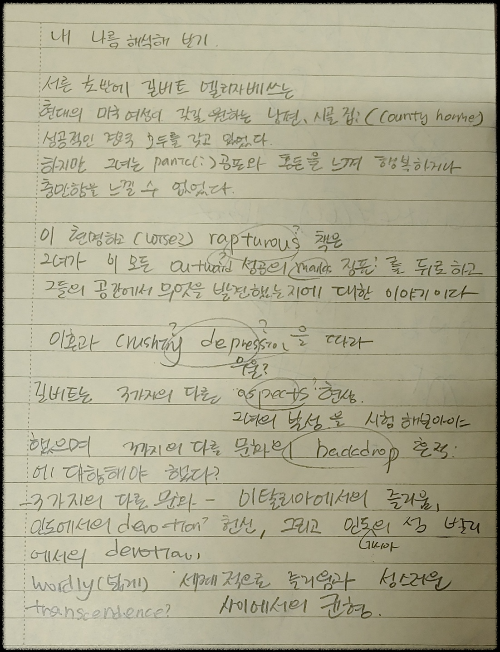 내 나름 해석해 보기.
서른 초반에 길버트 엘리자베쓰는
현대의 미국 여성이 갖길 원하는 남편, 시골 집; (county home)
성공적인 경력 모두를 갖고 있었다.
하지만 그녀는 panic(;) 공포와 혼돈을 느껴 행복하거나
충만함을 느낄 수 없었다.
이 현명하고 (wise?) rapturous? 책은
그녀가 이 모든 outward 성공의 marks 징표; 를 뒤로 하고
그들의 공간에서 무엇을 발견했는지에 대한 이야기이다
이혼과 crushing? depression? 을 따라
우울?
길버트는 3가지의 다른 aspects? 현상.
그녀의 본성을 시험 해보아야
했으며 3가지의 다른 문화의 backdrop 흔적;
에 대항해야 했다?
- 3가지의 다른 문화 - 이탈리아에서의 즐거움,
인도에서의 devotion? 헌신, 그리고 인도의 섬 발리
에서의 devotion,
wordly (넓게) 세계적으로 즐거움과 성스러운
transcendence? 사이에서의 균형.